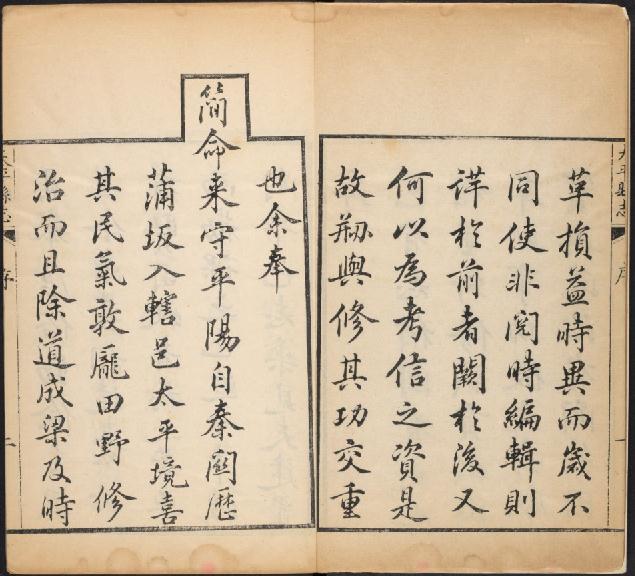 草損益時異而歲不
同使非閱時編輯則
詳於前者闕於後又
何以為考信之資是
故刱與修其功交重
也余奉
簡命来守平陽自秦關歴
蒲坂入轄邑太平境喜
其民氣敦龎田野修
治而且除道成梁及時
太平縣志
序